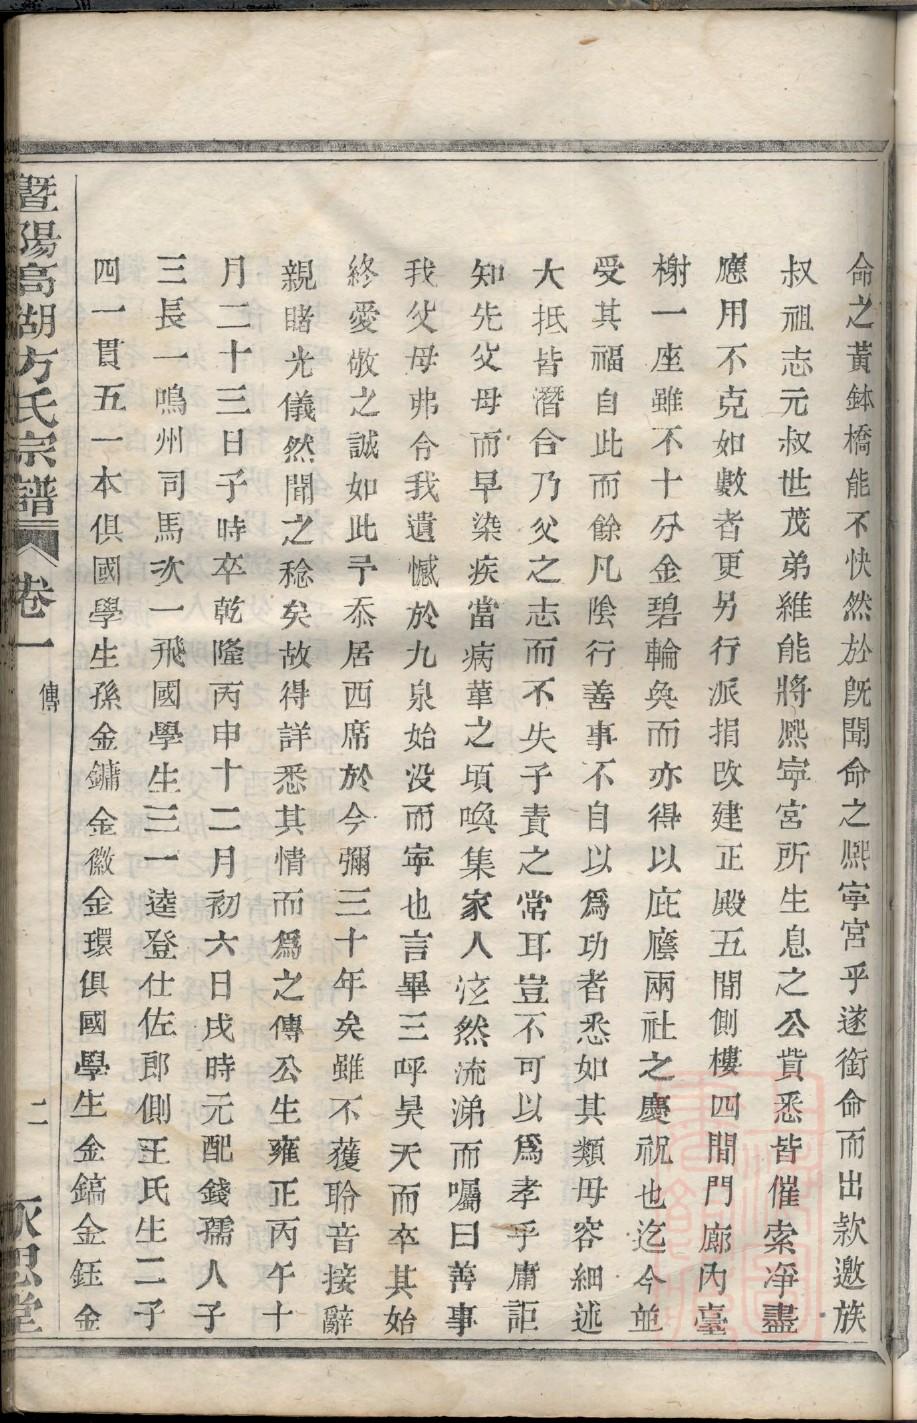 命之黃鉢橋能不快然於旣聞命之熈寜宮乎遂銜命而出款邀族
叔祖志元叔世茂弟維能將熈寜宮所生息之公貲悉皆催索凈盡
應用不克如數者更另行派捐改建正殿五間側樓四間門廊內臺
榭一座雖不十分金碧輪奐而亦得以庇廕兩社之慶祝也迄今並
受其福自此而餘凡陰行善事不自以爲功者悉如其類毋容細述
大抵皆潛合乃父之志而不失子責之常耳豈不可以爲孝乎庸詎
知先父母而早染疾當病革之頃喚集家人泫然流涕而囑曰善事
我父母弗令我遺憾於九泉始没而寜也言畢三呼昊天而卒其始
終愛敬之誠如此予忝居西席於今彌三十年矣雖不蒦聆音接辭
親睹光儀然聞之稔矣故得詳悉其情而爲之傳公生雍正丙午十
月二十三日子時卒乾隆丙申十二月初六日戌時元配錢孺人子
三長一鳴州司馬次一飛國學生三一逵登仕佐郎側王氏生二子
四一貫五一本俱國學生孫金鏞金徽金環俱國學生金鎬金鈺金
暨陽高湖方氏宗譜 卷一 傳 二 永思堂